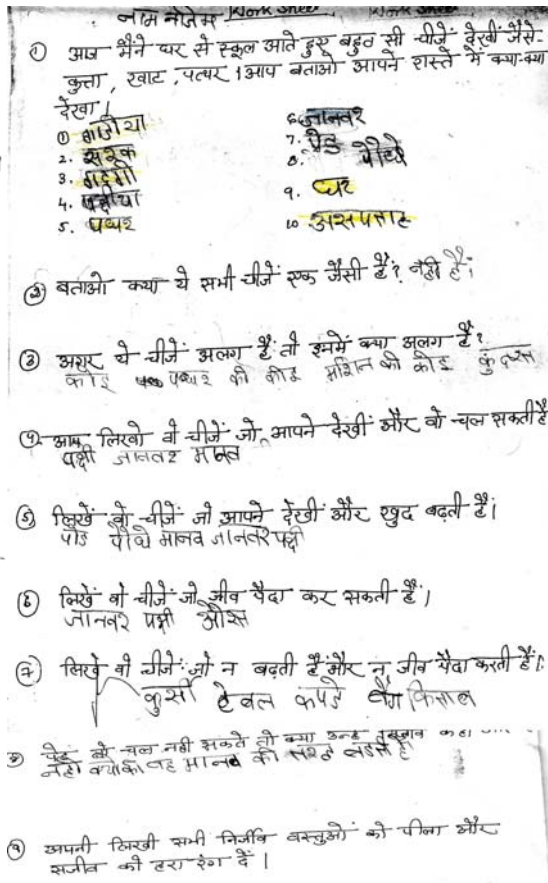 नाम नोजेम Work Sheet Work Sheet
① आज मैंने घर से स्कूल आते हुए बहुत सी चीजें देखीं जैसे-
कुत्ता, खाट, पत्थर । आप बताओ आपने रास्ते में क्या-क्या
देखा ।
① गाड़ीया
2. सड़क
3.
4. पक्षीया
5. पथर
6. जानवर
7. पेड़
8. पौधे
9. घर
10. असपताल
② बताओ क्या ये सभी चीजें एक जैसी हैं? नही हैं।
③ अगर ये चीजें अलग हैं तो इनमें क्या अलग है?
कोइ पथर की कोइ मशिन की कोइ
④ आप लिखो वो चीजें जो आपने देखीं और वो चल सकती हैं
पक्षी जानवर मानव
⑤ लिखें वो चीजें जो आपने देखीं और खुद बढ़ती हैं।
पेड पौधे मानव जानवर पक्षी
⑥ लिखें वो चीजें जो जीव पैदा कर सकती हैं।
जानवर पक्षी औरत
⑦ लिखे वो चीजें जो न बढ़ती हैं और न जीव पैदा करती हैं।
कुर्सी टेबल कपडे बैग किताब
पेड़ वो चल नहीं सकते तो क्या उन्हें
नही क्योंकि वह मानव की तरह बडते है
⑨ अपनी लिखी सभी निर्जीव वस्तुओं को पीला और
सजीव को हरा रंग दें ।